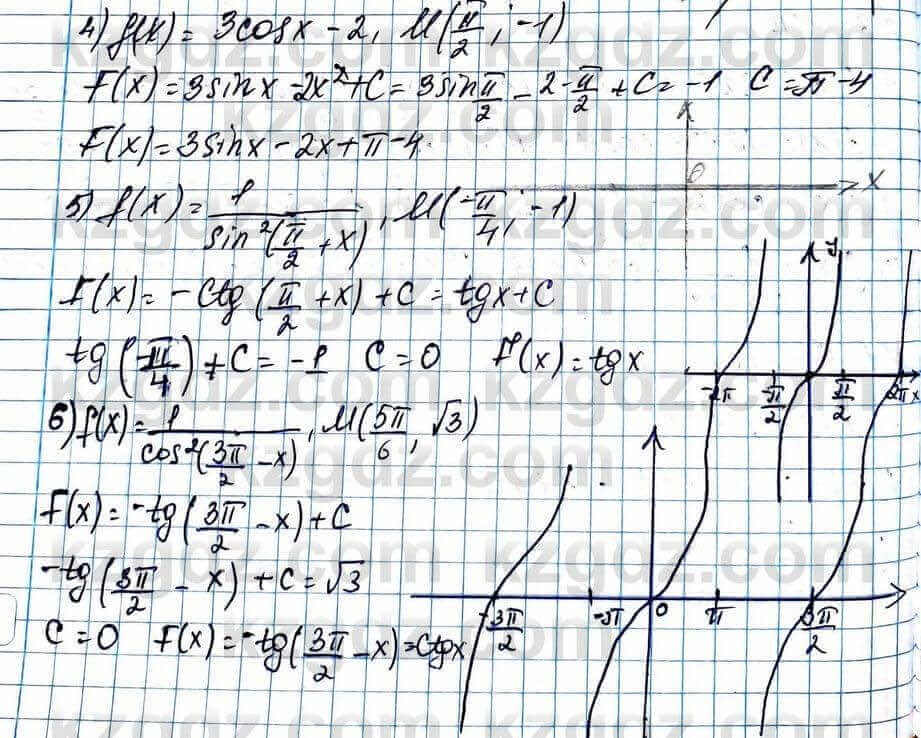 4) f(x) = 3cosx - 2, M(π/2; -1)
F(x) = 3sinx - 2x² + C = 3sin π/2 - 2·π/2 + C = -1 C = π - 4
F(x) = 3sinx - 2x + π - 4.
x
0
5) f(x) = 1/sin²(π/2 + x), M(-π/4; -1)
F(x) = -Ctg(π/2 + x) + C = tgx + C
tg(-π/4) + C = -1 C = 0 F(x) = tgx
y
-2π -π/2 π/2 2π x
6) f(x) = 1/cos²(3π/2 - x), M(5π/6, √3)
F(x) = -tg(3π/2 - x) + C
-tg(3π/2 - x) + C = √3
C = 0 F(x) = -tg(3π/2 - x) = Ctgx
-3π/2 -π 0 π 3π/2
kzgdz.com